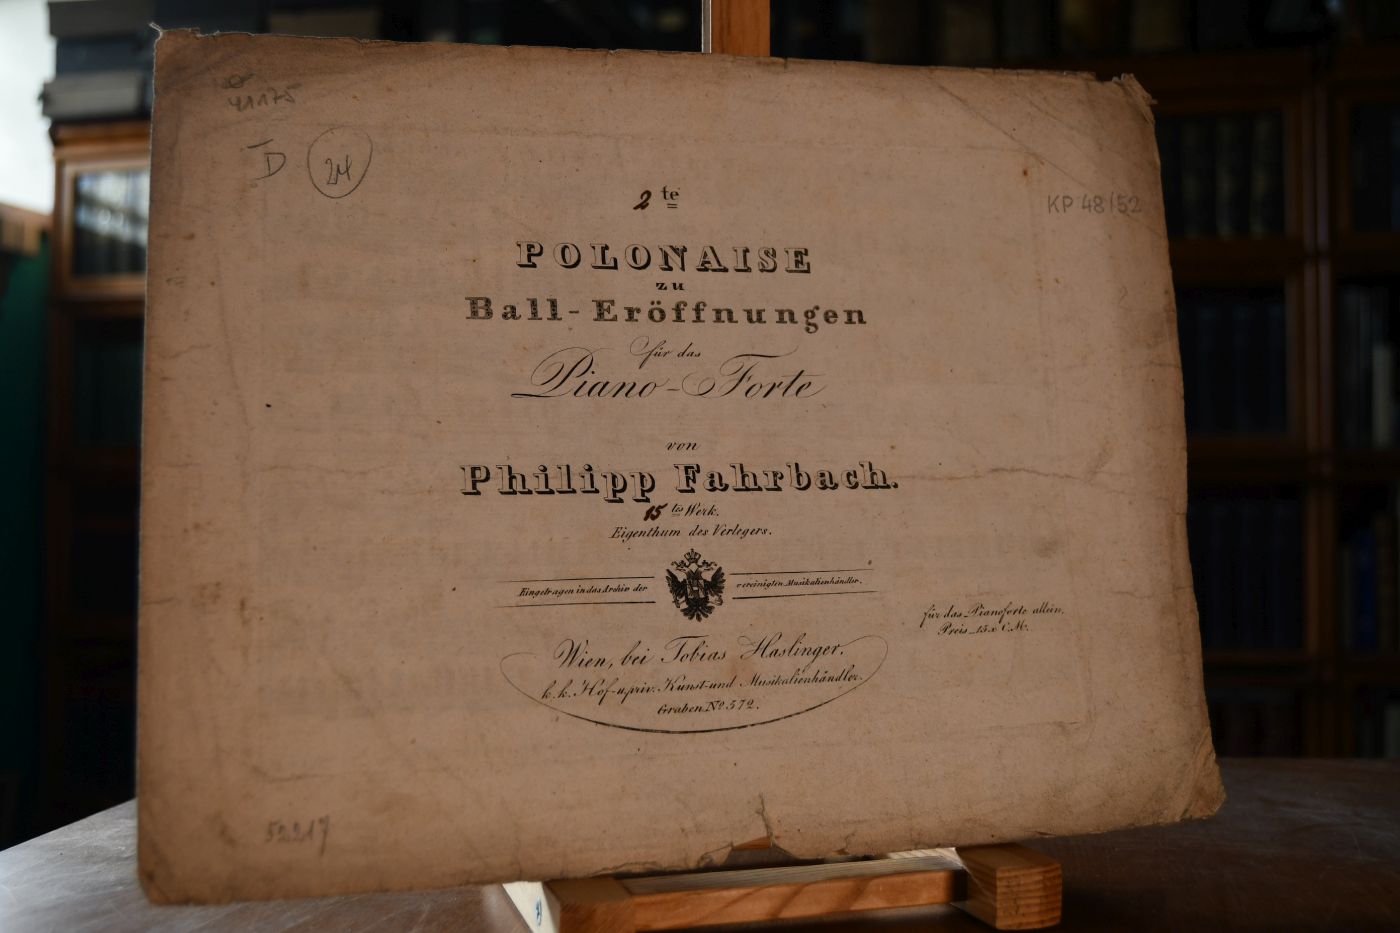 41175
D
24
KP 48/52
2te
POLONAISE
zu
Ball-Eröffnungen
für das
Piano-Forte
von
Philipp Fahrbach.
15tes Werk.
Eigenthum des Verlegers.
Eingetragen in das Archiv der vereinigten Musikalienhändler.
für das Pianoforte allein.
Preis 15x C.M.
Wien, bei Tobias Haslinger,
k.k. Hof- u. priv. Kunst- und Musikalienhändler.
Graben No 572.
52217